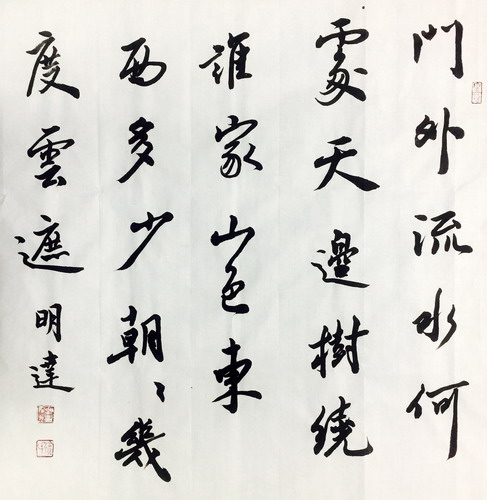 門外流水何
處天邊樹繞
誰家山色東
西多少朝〻幾
度雲遮 明達